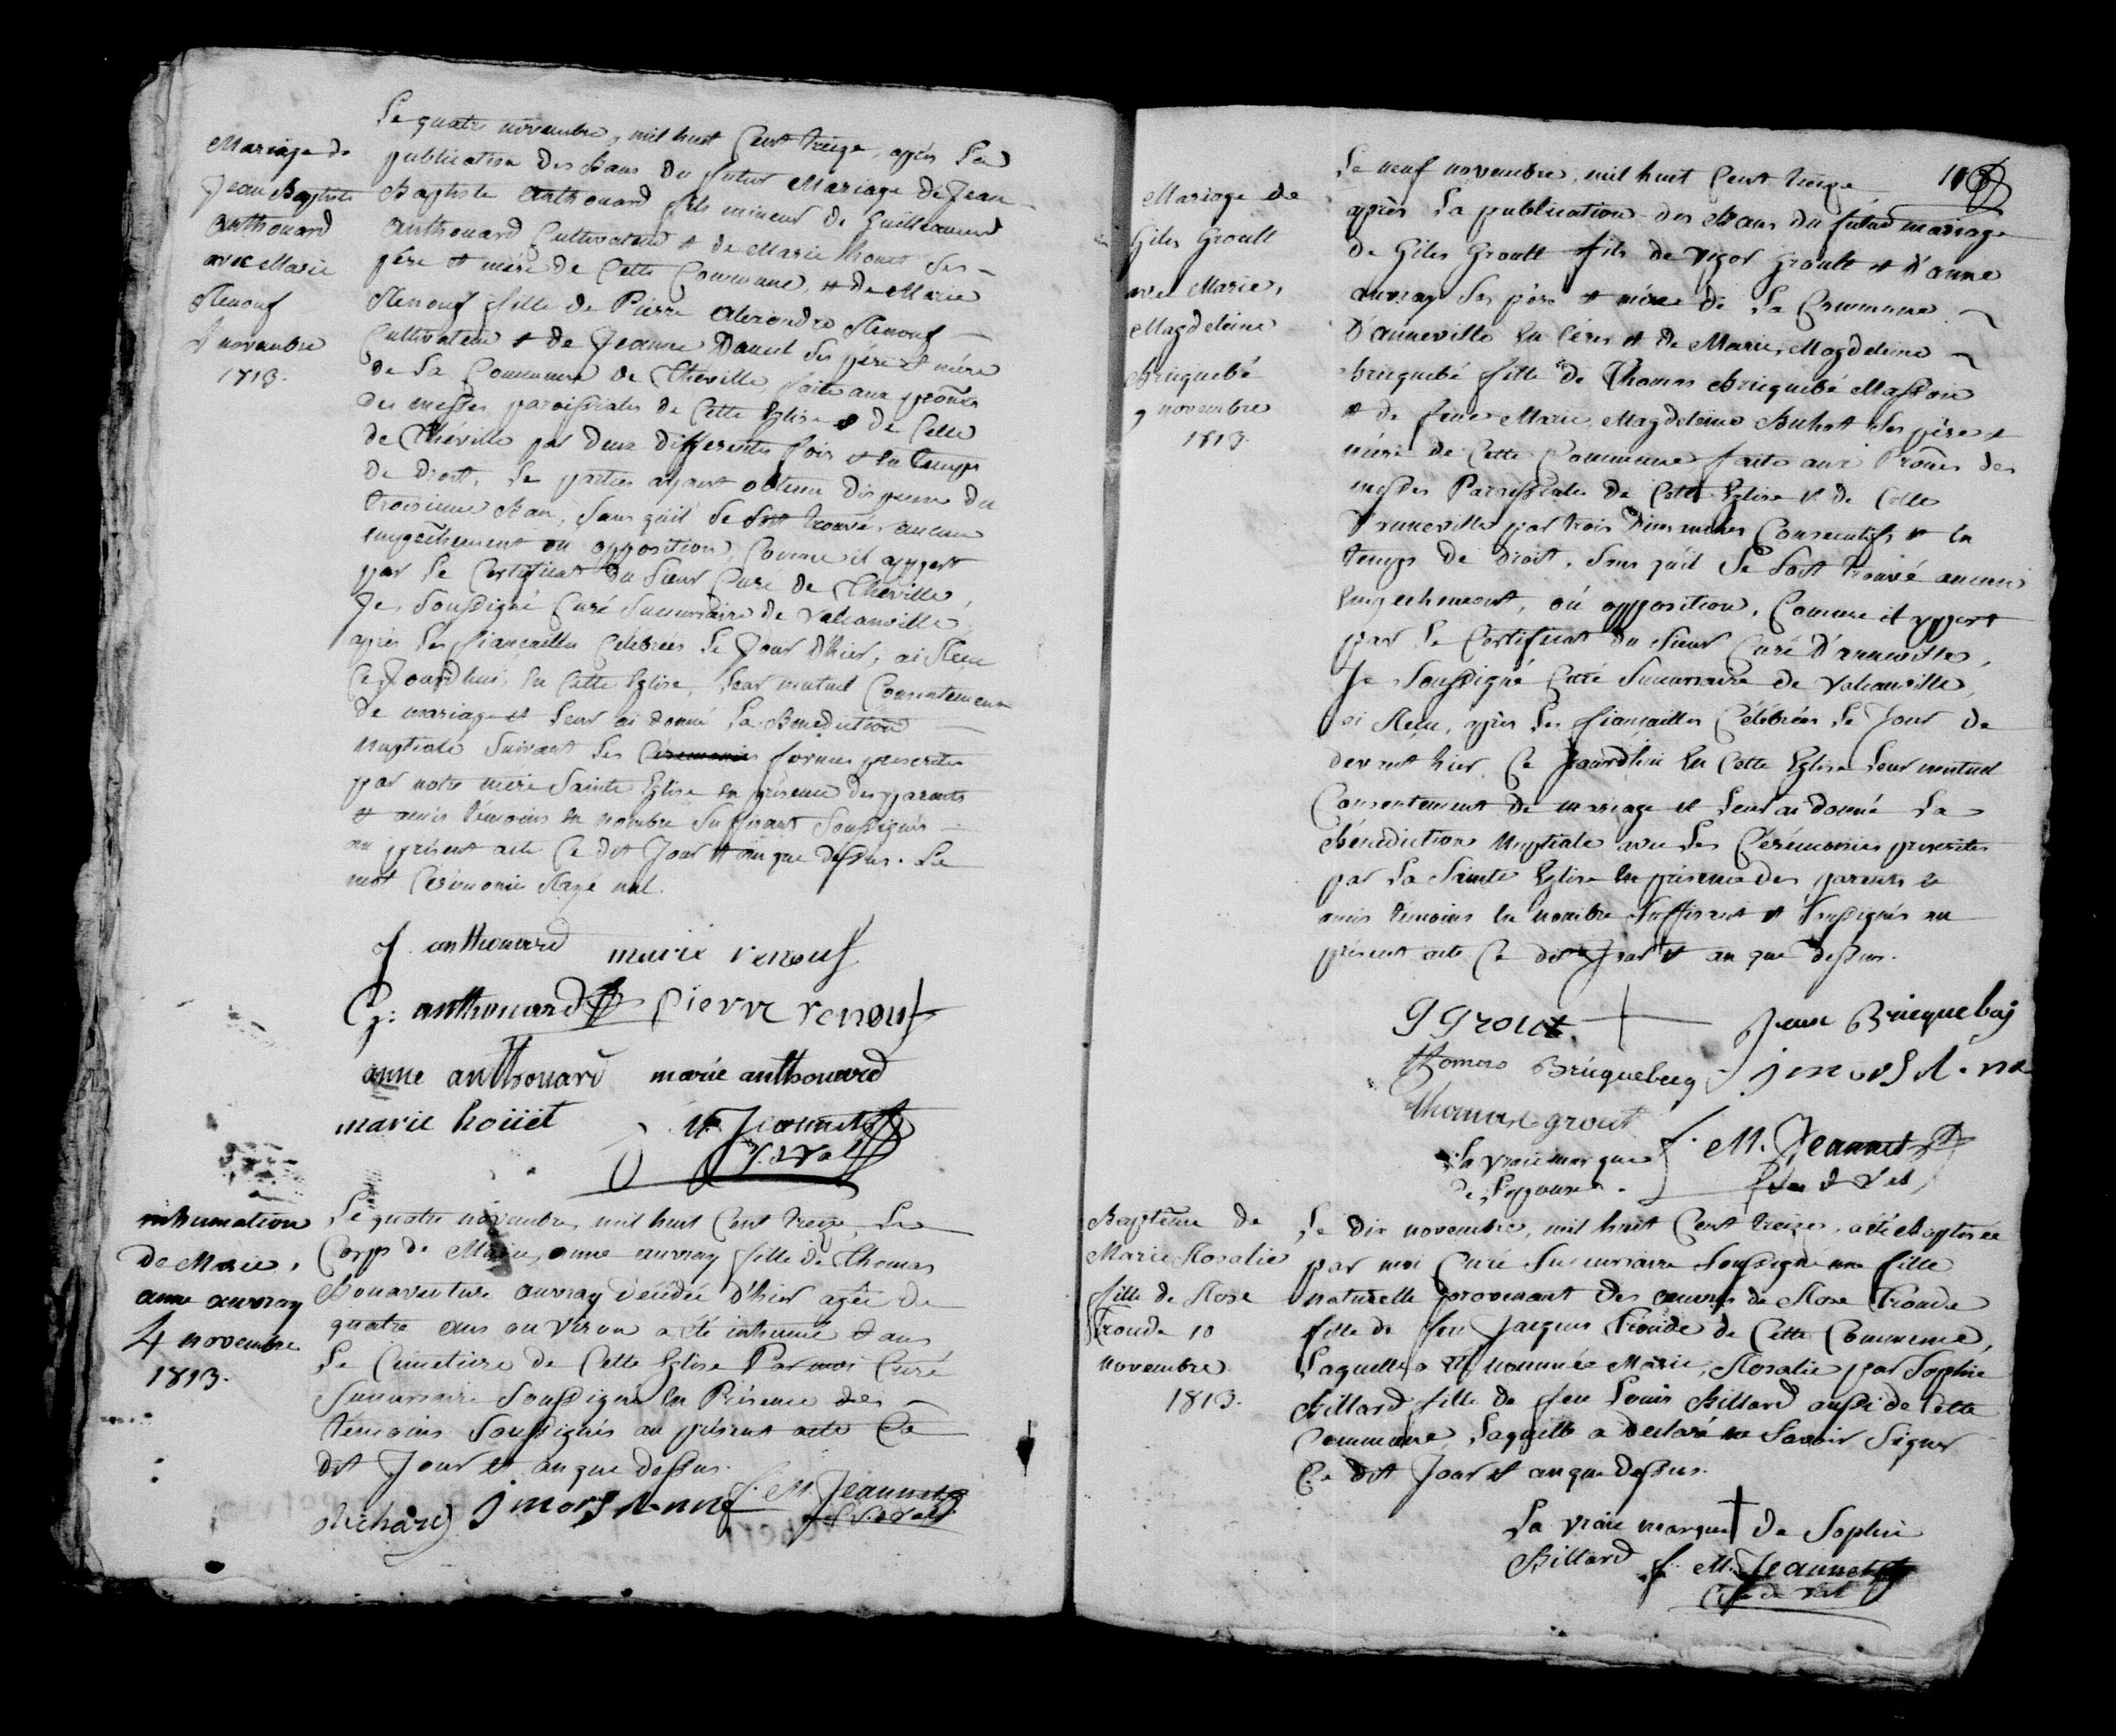 Mariage de
Jean Baptiste
Anthouard
avec Marie
Renouf
4 novembre
1813.
Le quatre novembre, mil huit Cent treize, après La
publication des Bans du futur Mariage de Jean
Baptiste Anthouard fils mineur de Guillaume
Anthouard Cultivateur et de Marie houet ses
père et mère de Cette Commune, et de Marie
Renouf fille de Pierre Alexandre Renouf
Cultivateur et de Jeanne Daniel ses père et mère
de La Commune de Théville, faite aux prônes
des messes paroissiales de Cette Eglise et de Celle
de Théville par deux differentes fois et en temps
de droit, Le parties ayant obtenu dispense du
troisieme Ban, sans qu'il se soit trouvé aucun
empêchement ou opposition, Comme il appert
par Le Certificat du Sieur Curé de Théville,
Je Soussigné Curé Succursaire de Valcanville,
après Les fiançailles Célébrées Le Jour d'hier, ai Recu
Ce Jourdhui, en Cette Eglise, Leur mutuel Consentement
de mariage et Leur ai donné La Benediction
nuptiale Suivant Les Cérémonies formes prescrites
par notre mère Sainte Eglise en présence des parents
et amis témoins en nombre Suffisant Soussignés
au présent acte Ce dit Jour et an que dessus. Le
mot Cérémonie Rayé nul.
J. anthouard marie renouf
G: anthouard pierre renouf
anne anthouard marie anthouard
marie hoüet M. Jeannet
inhumation
de Marie,
anne auvray
4 novembre
1813.
Le quatre novembre, mil huit Cent treize, Le
Corps de Marie, anne auvray fille de Thomas
Bonaventure auvray décédée d'hier agée de
quatre ans ou viron a été inhumé dans
Le Cimetiere de Cette Eglise Par moi Curé
Succursaire Soussigné en Présence des
témoins Soussignés au présent acte Ce
dit Jour et an que dessus.
Richard J. M. Jeannet
Mariage de
Giles Groult
avec Marie,
Magdeleine
Bricquebé
9 novembre
1813.
Le neuf novembre, mil huit Cent treize
après La publication des Bans du futur mariage
de Giles Groult fils de Vigor Groult et d'anne
auvray Ses père et mère de La Commune
D'anneville en Céres et de Marie, Magdeleine
Bricquebé fille de Thomas Bricquebé Masson
et de feue Marie, Magdeleine Buhot Ses père et
mère de Cette Commune faite aux Prônes des
messes Paroissiales de Cette Eglise et de Celle
D'anneville par trois Dimanches Consecutifs et en
temps de droit, Sans qu'il Se Soit trouvé aucun
Empechement, ou opposition, Comme il appert
par Le Certificat du Sieur Curé D'anneville,
Je Soussigné Curé Succursaire de Valcanville,
ai Recu, après Les fiançailles Célébrées Le Jour de
devant hier, Ce Jourdhui en Cette Eglise Leur mutuel
Consentement de mariage et Leur ai donné La
Bénédiction Nuptiale avec Les Cérémonies prescrites
par La Sainte Eglise en présence des parents et
amis témoins en nombre Suffisant et Soussignés au
présent acte Ce dit Jour et an que dessus.
Thomas Bricquebecq
thomas grout
La vraie marque J. M. Jeannet
de L'epouse.
Baptême de
Marie Rosalie
fille de Rose
Troude 10
novembre
1813.
Le dix novembre, mil huit Cent treize, a été Baptisée
par moi Curé Succursaire Soussigné une fille
naturelle provenant des œuvres de Rose Troude
fille de feu Jacques Troude de Cette Commune,
Laquelle a été nommée Marie, Rosalie par Sophie
Billard fille de feu Louis Billard aussi de Cette
Commune, Laquelle a Declaré ne Savoir Signer
Ce dit Jour et an que dessus.
La vraie marque de Sophie
Billard J. M. Jeannet